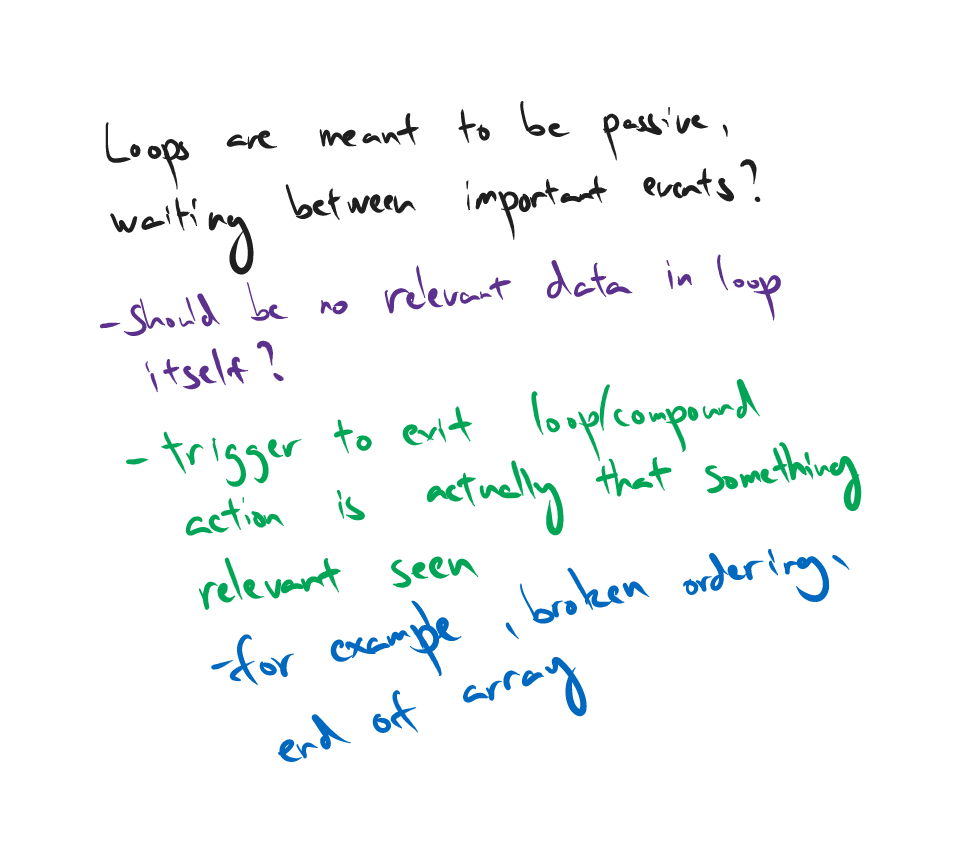 Loops are meant to be passive,
waiting between important events?
- should be no relevant data in loop
itself?
- trigger to exit loop/compound
action is actually that something
relevant seen
- for example, broken ordering,
end of array